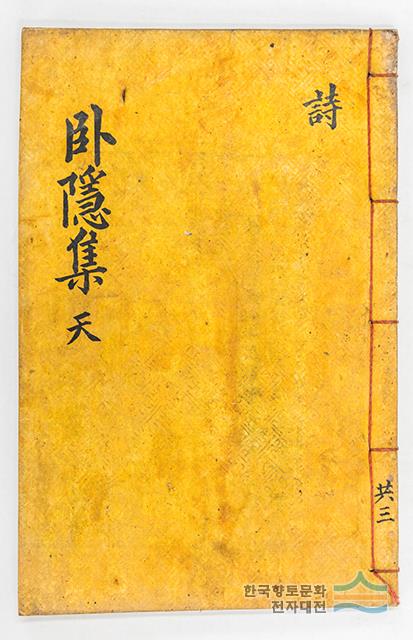 詩
臥隱集 天
共三
한국향토문화
전자대전